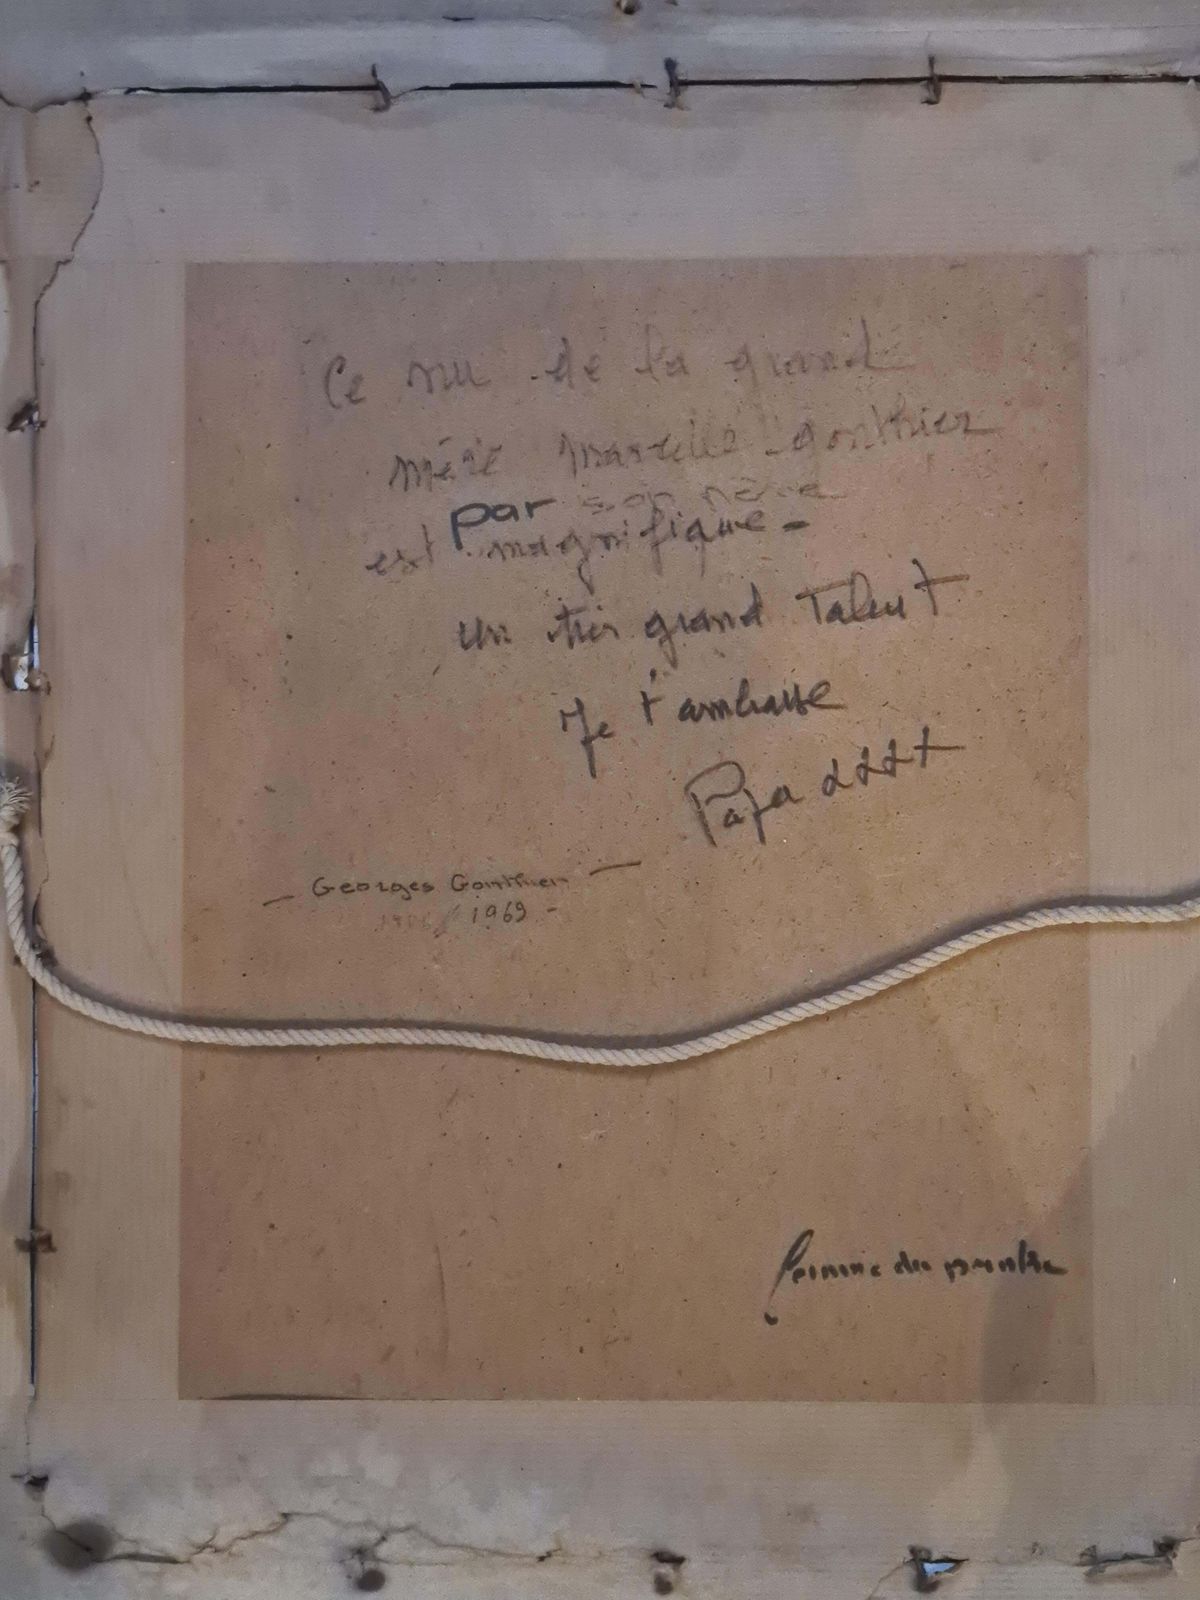 Ce nu de la grand
mère Marcelle Gonthier
par son père
est magnifique -
un très grand Talent
Je t'ambrasse
Papa
— Georges Gonthier —
1969 -
femme du peintre